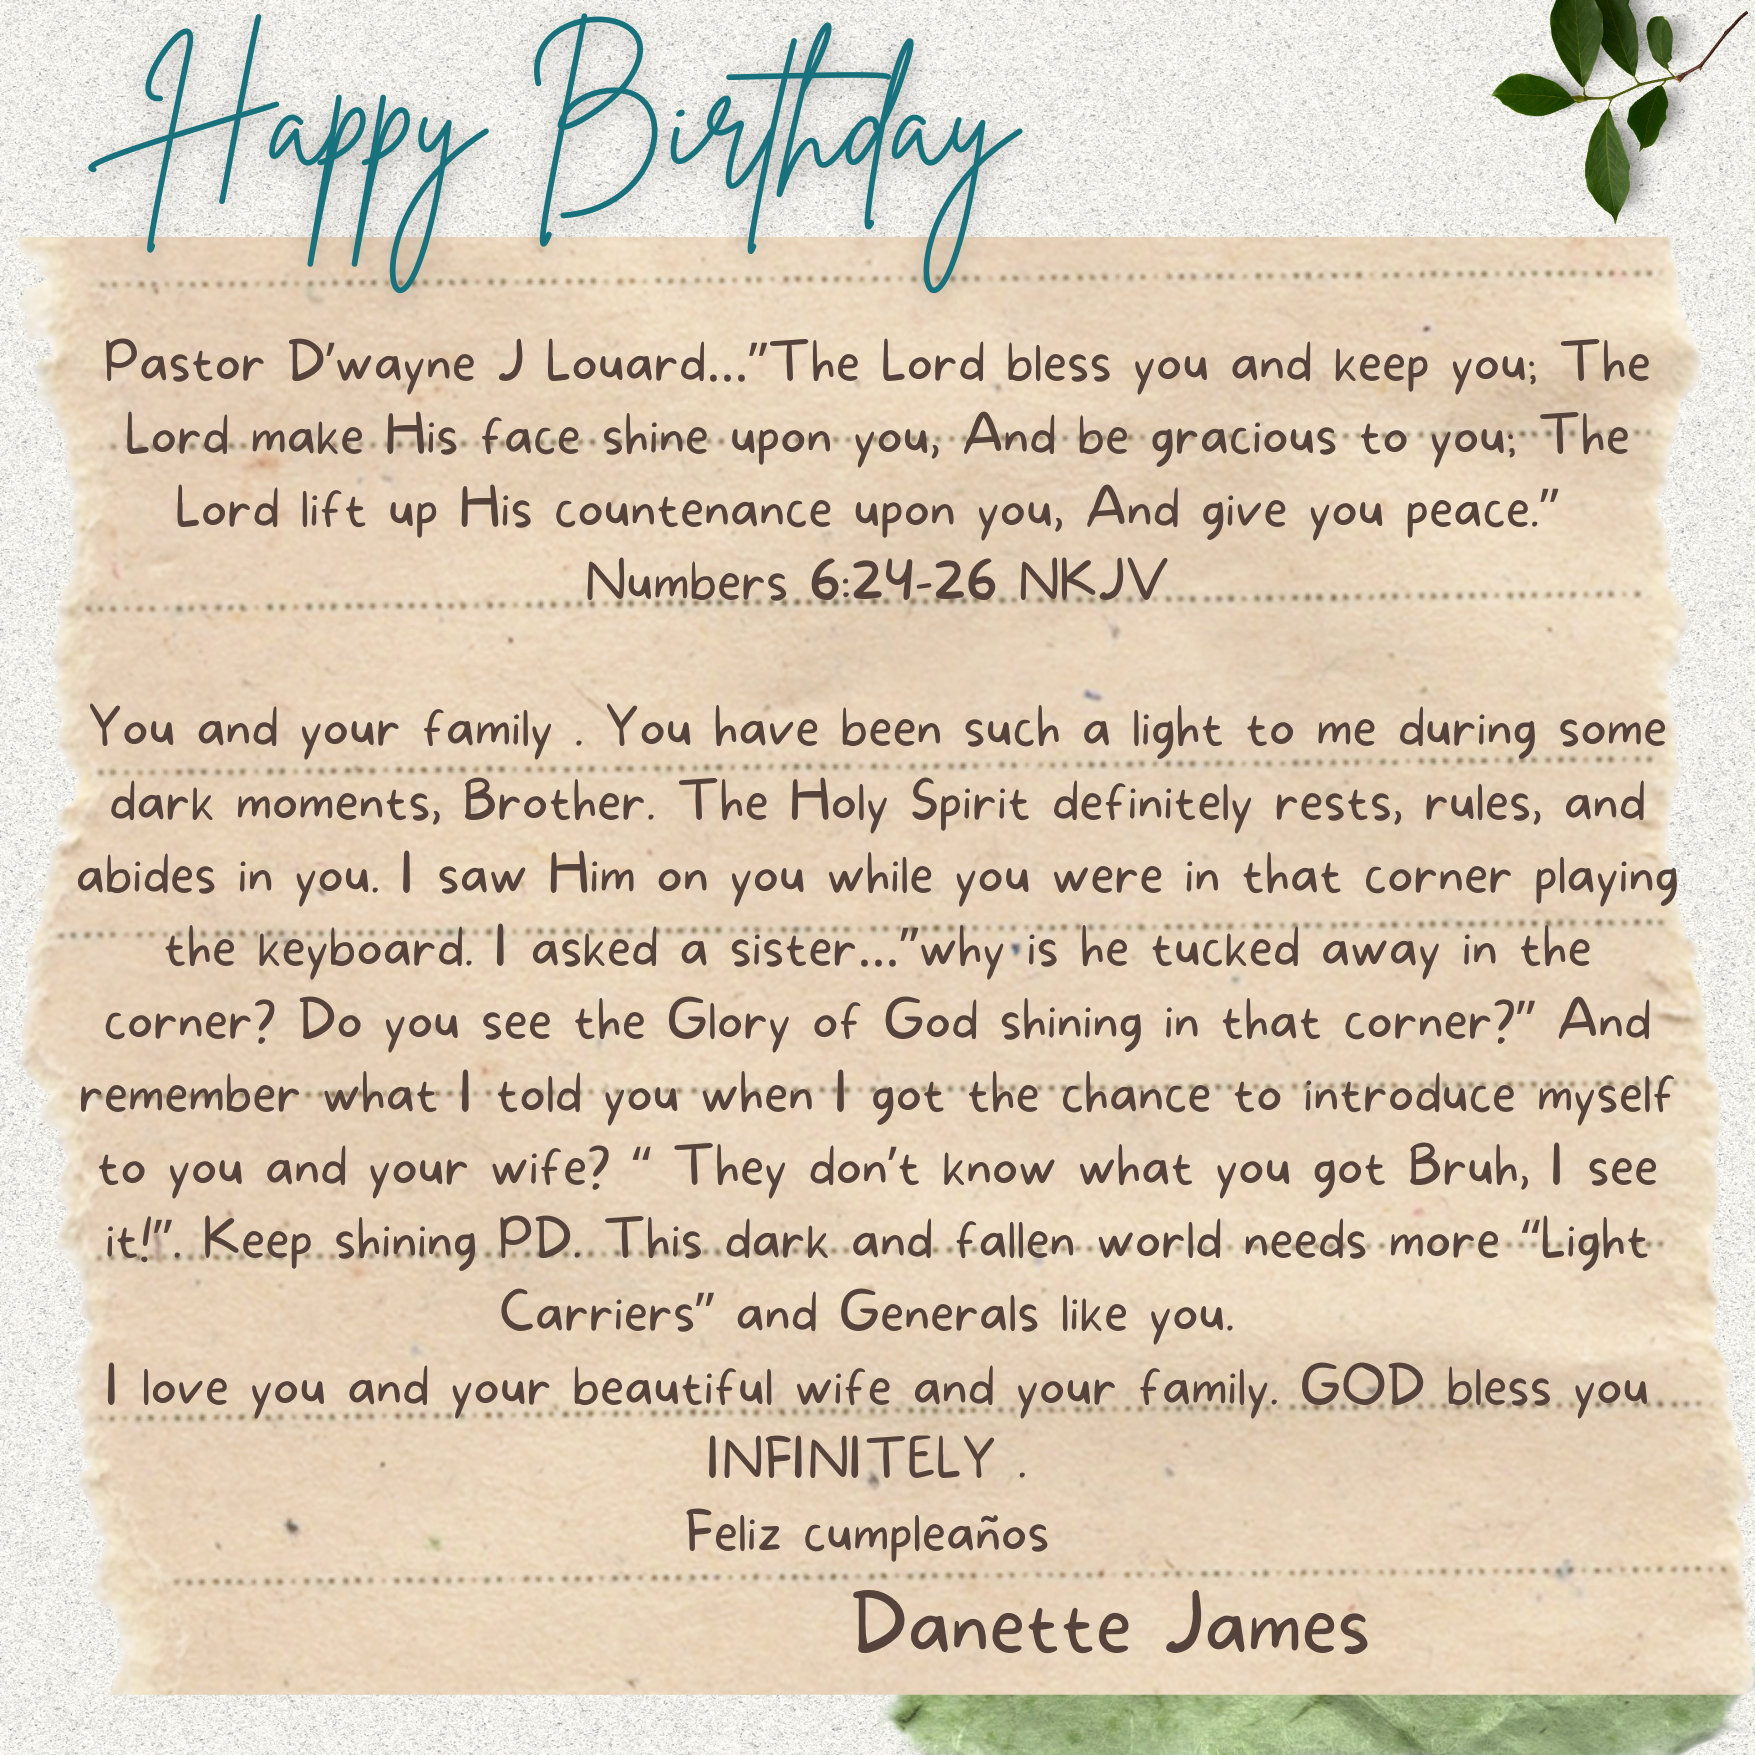 Happy Birthday
Pastor D'wayne J Louard..."The Lord bless you and keep you; The
Lord make His face shine upon you, And be gracious to you; The
Lord lift up His countenance upon you, And give you peace."
Numbers 6:24-26 NKJV
You and your family . You have been such a light to me during some
dark moments, Brother. The Holy Spirit definitely rests, rules, and
abides in you. I saw Him on you while you were in that corner playing
the keyboard. I asked a sister..."why is he tucked away in the
corner? Do you see the Glory of God shining in that corner?" And
remember what I told you when I got the chance to introduce myself
to you and your wife? “ They don't know what you got Bruh, I see
it!". Keep shining PD. This dark and fallen world needs more “Light
Carriers" and Generals like you.
I love you and your beautiful wife and your family. GOD bless you
INFINITELY .
Feliz cumpleaños
Danette James